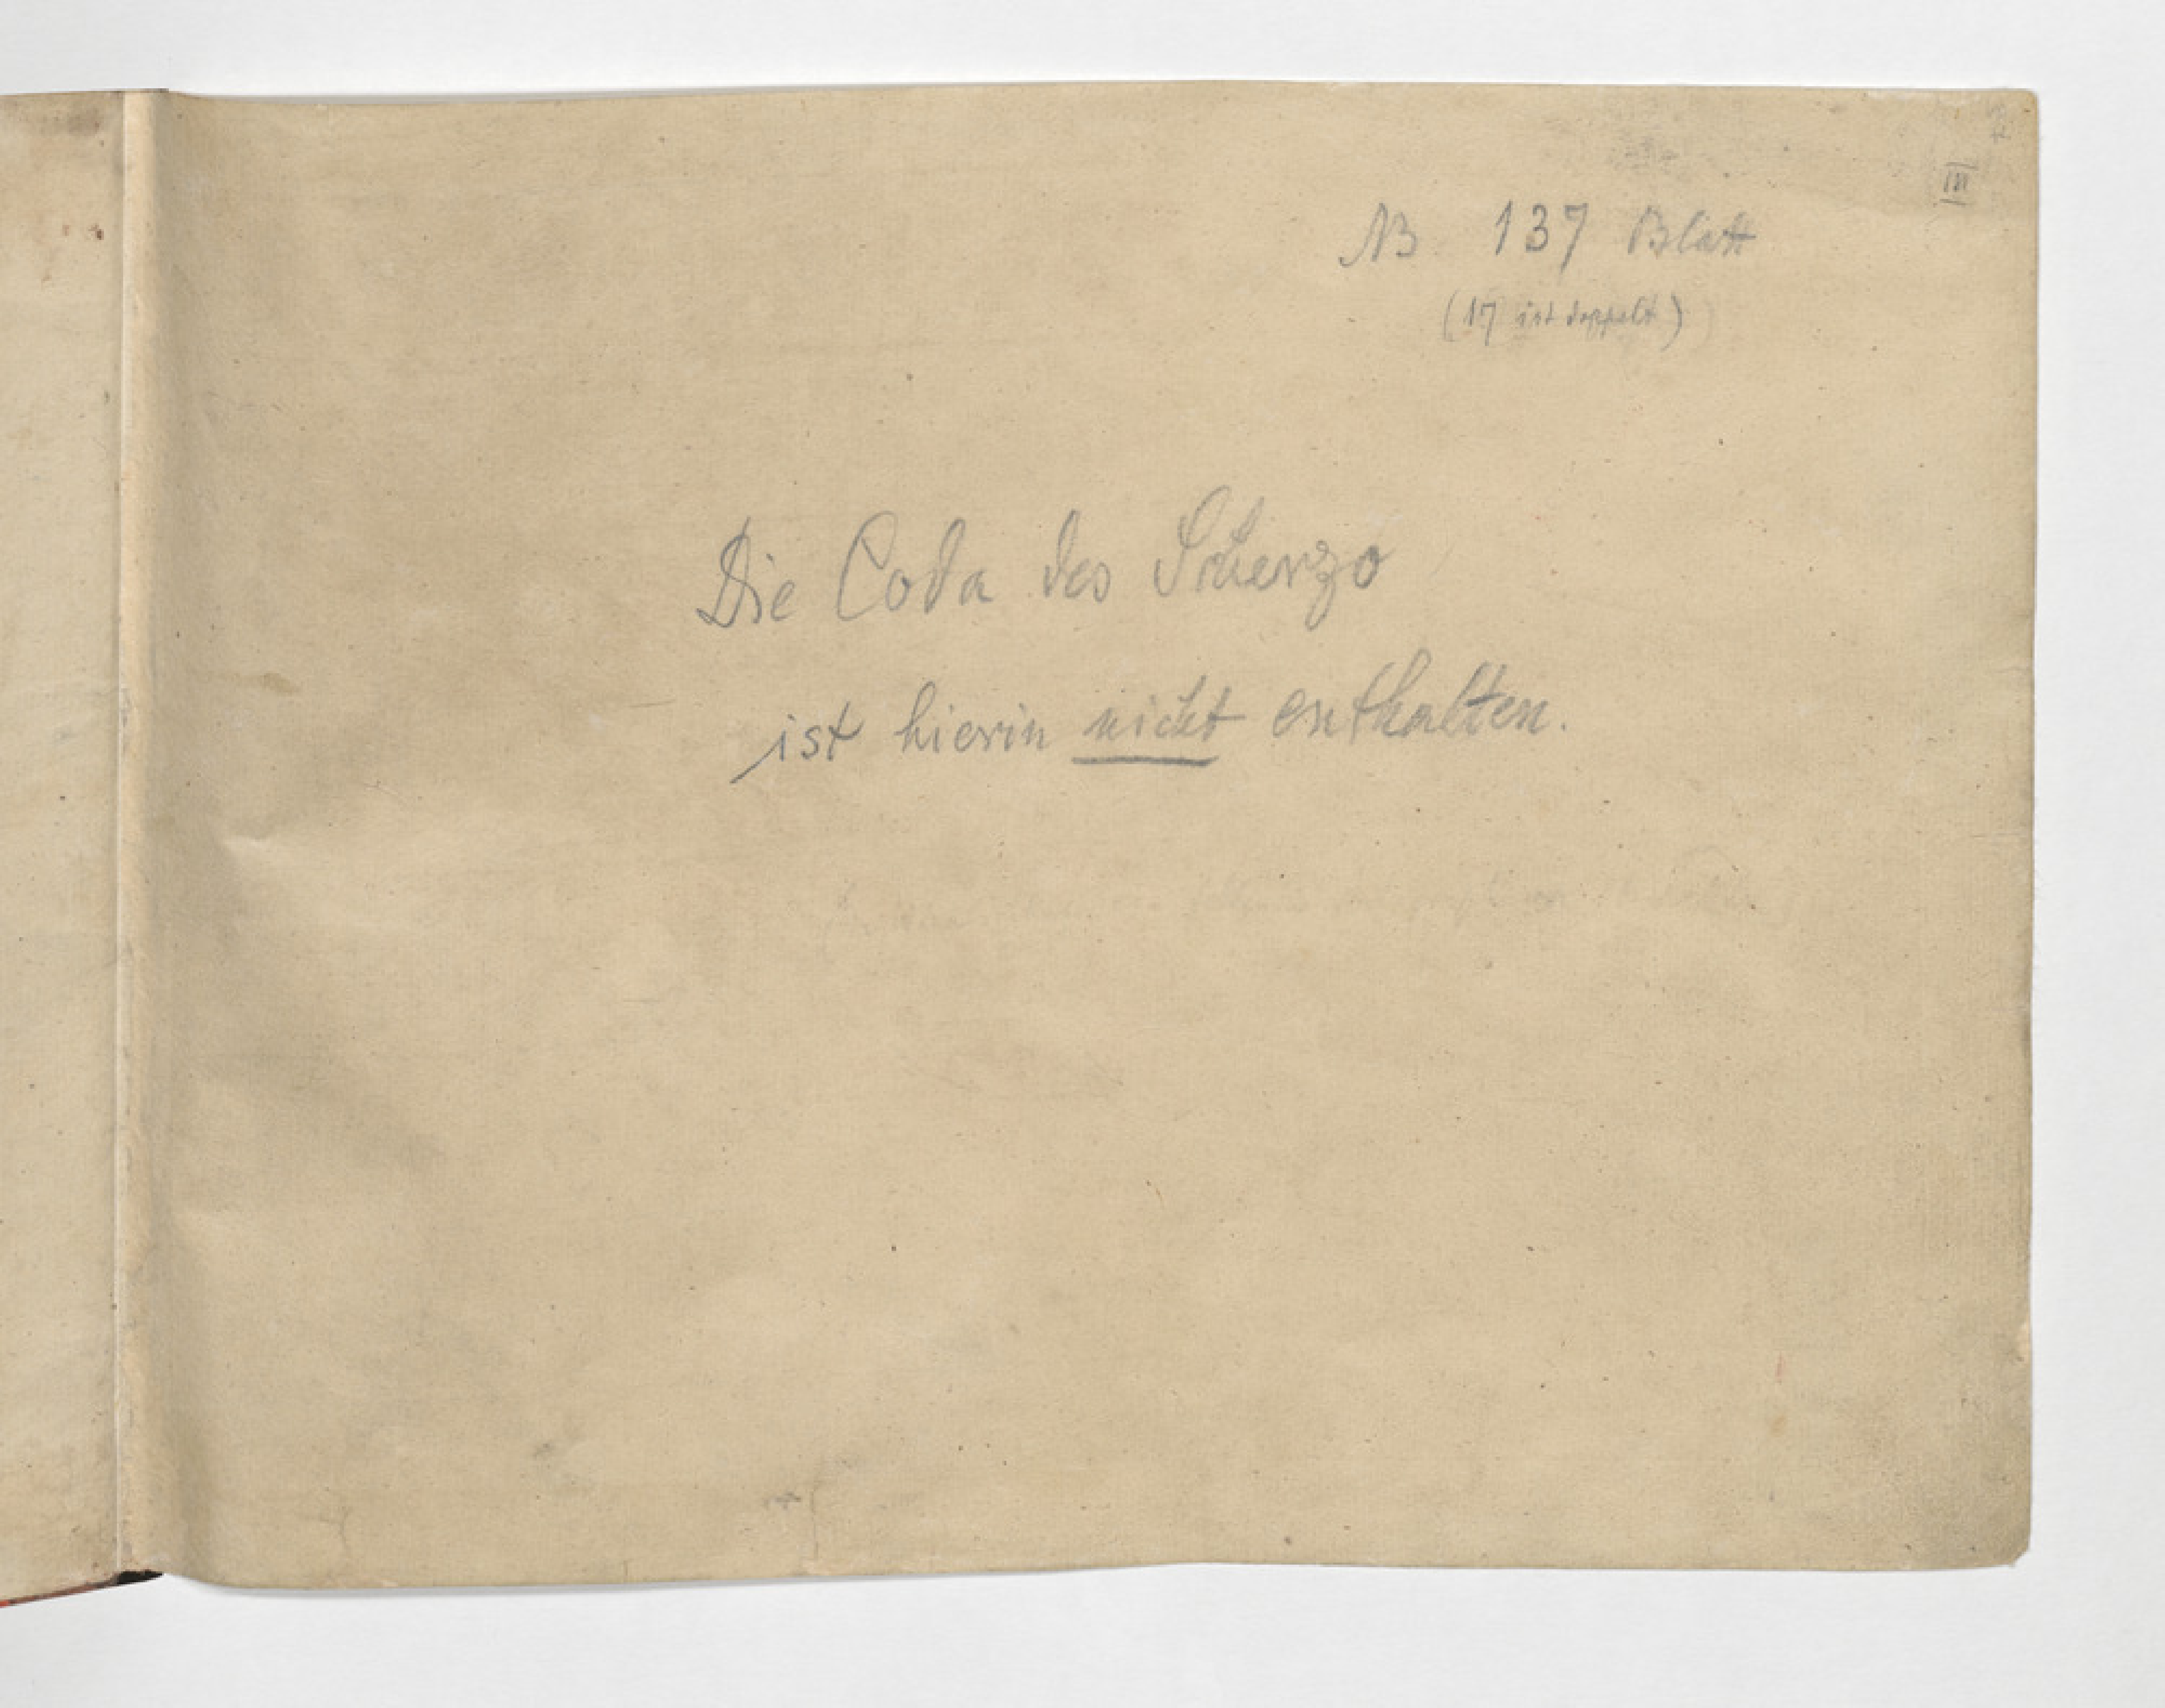 III
NB. 137 Blatt
(17 ist doppelt)
Die Coda des Scherzo
ist hierin nicht enthalten.